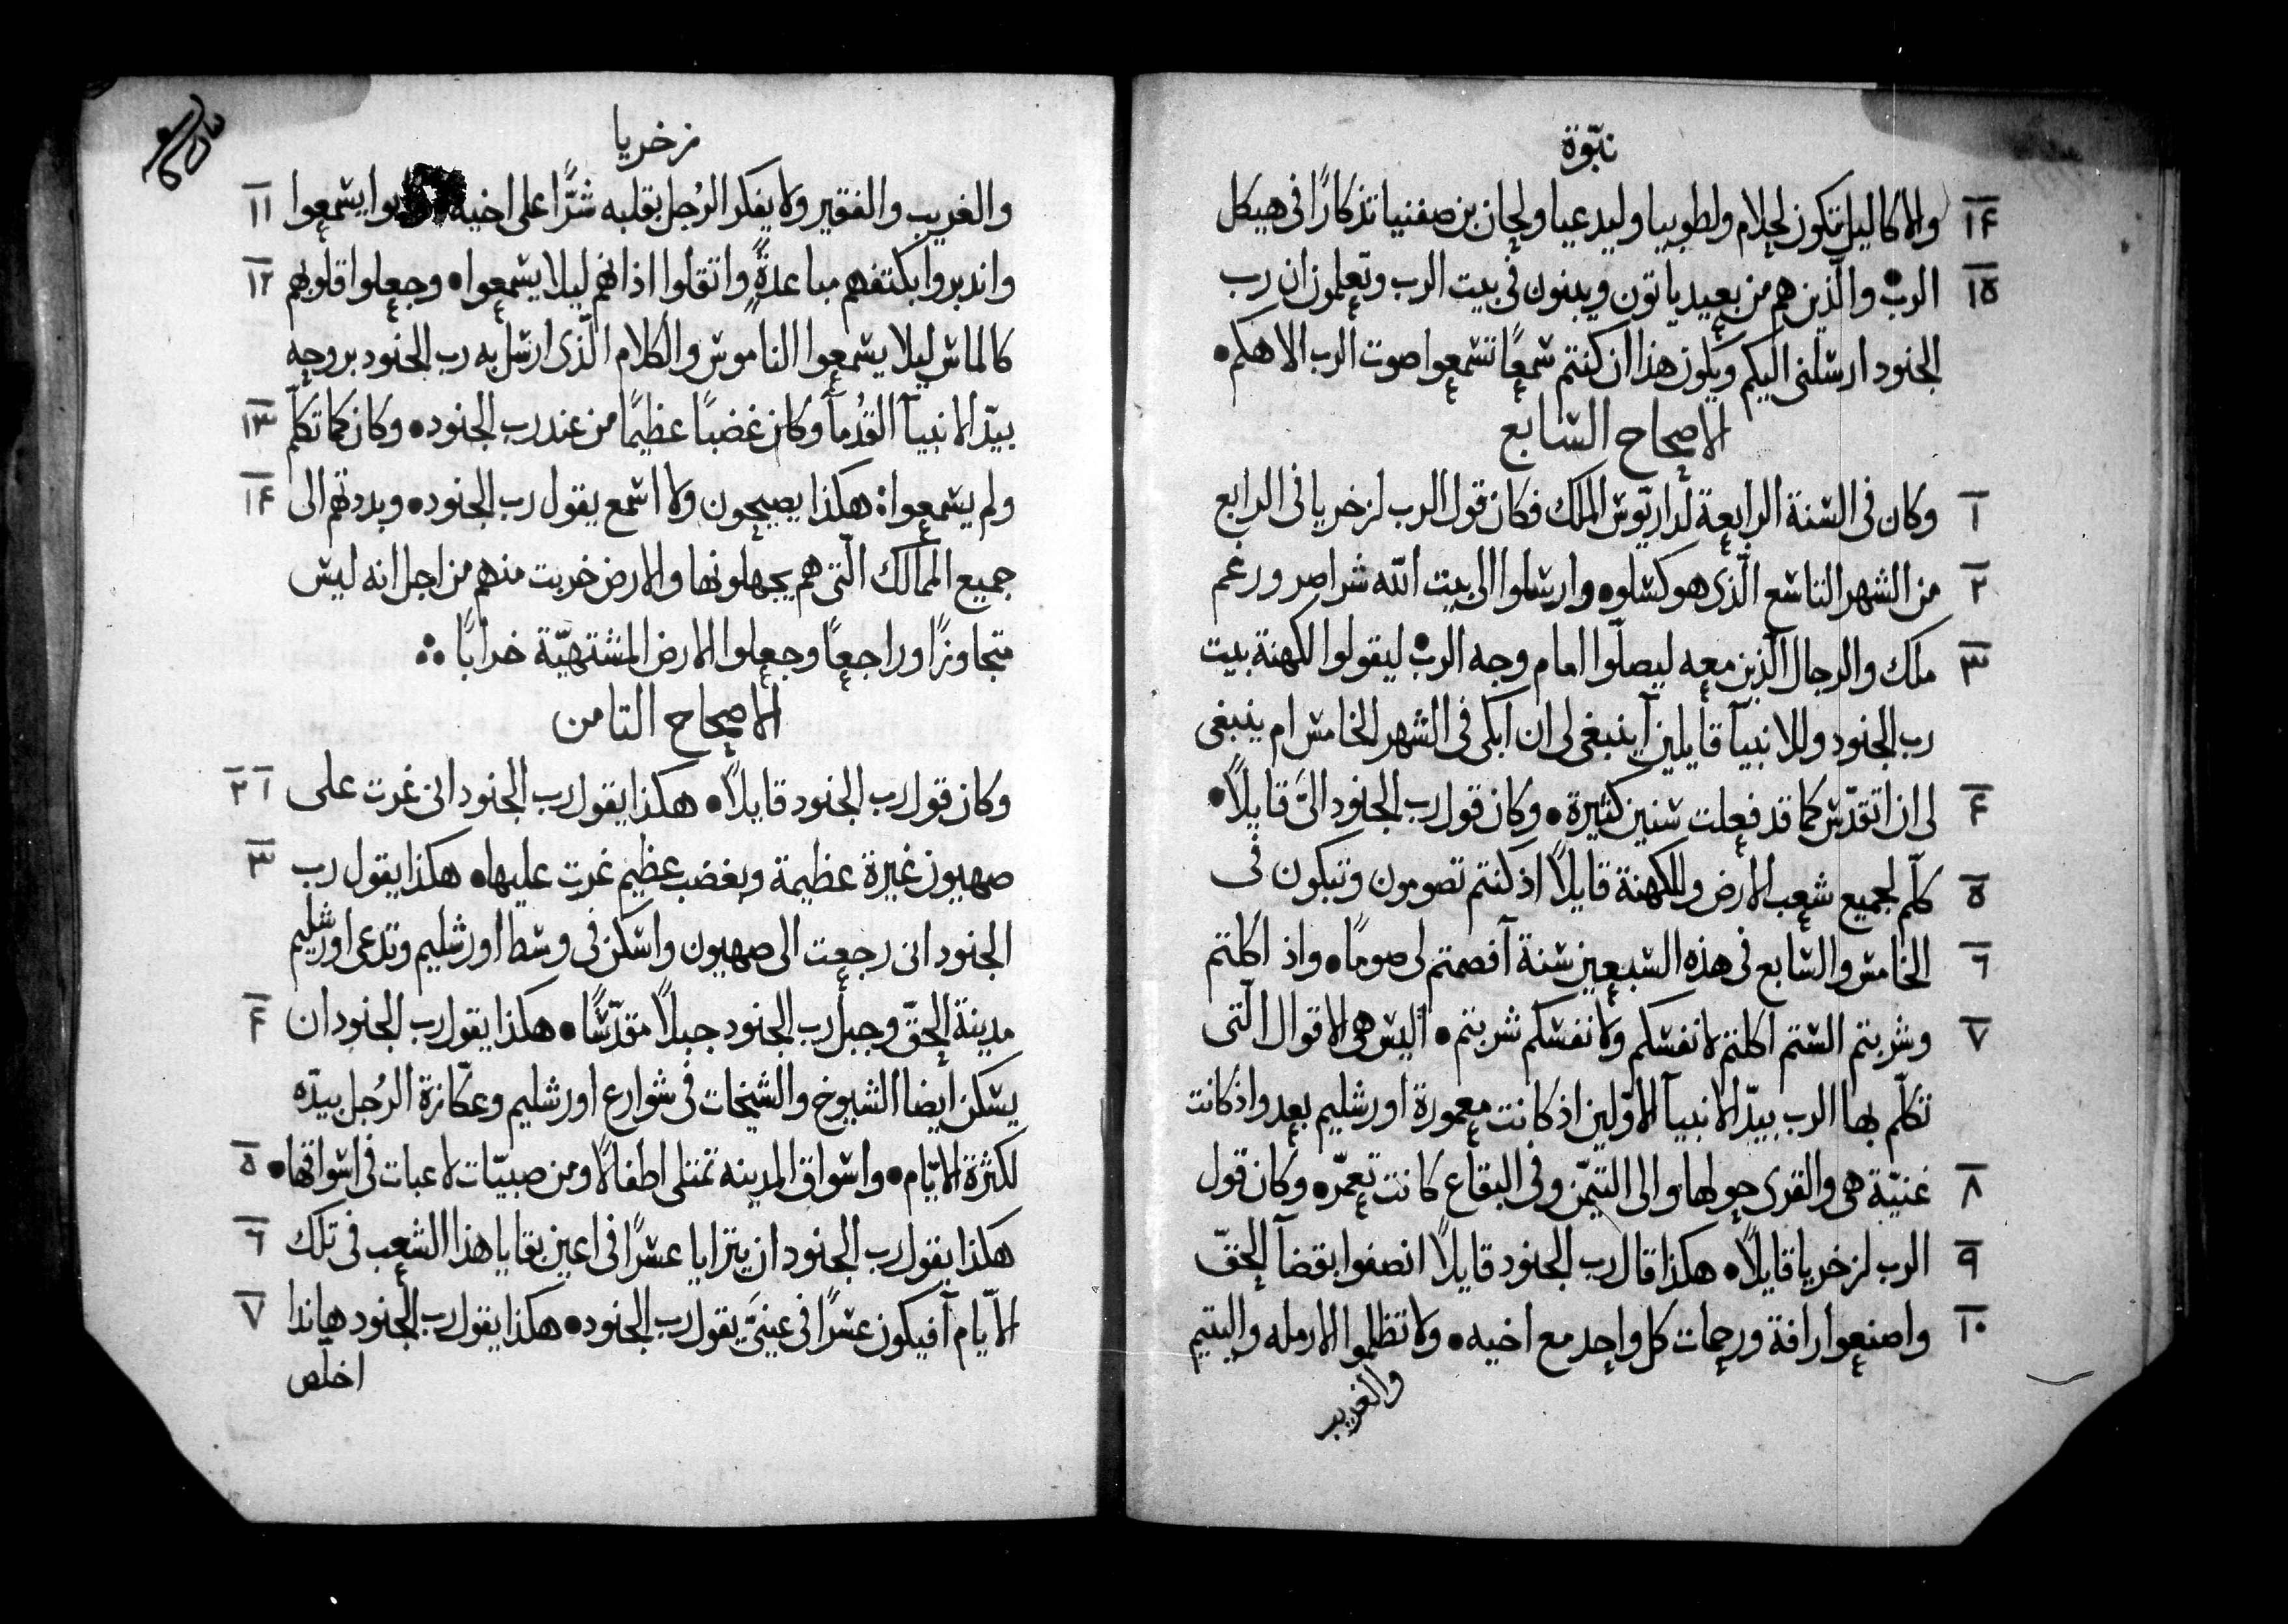 نبّوة
١٤ والاكاليل تكون لحلام ولطوبيا وليدعيا ولحان بن صفنيا تذكارًا فى هيكل
١٥ الرب والّذين هم من بعيد ياتون ويبنون فى بيت الرب وتعلمون ان رب
الجنود ارسلنى اليكم ويكون هذا ان كنتم سمعًا تسمعوا صوت الرب الاهكم
الاصحاح السابع
١ وكان فى السنة الرابعة لداريّوس الملك فكان قول الرب لزخريا فى الرابع
٢ من الشهر التاسع الّذى هو كسلو وارسلوا الى بيت الله شراصر ورغم
٣ ملك والرجال الّذين معه ليصلّوا امام وجه الرب ليقولوا لكهنة بيت
رب الجنود وللانبيآ قايلين آينبغى لى ان ابكى فى الشهر الخامس ام ينبغى
٤ لى ان اتقدّس كما قد فعلت سنين كثيرة وكان قول رب الجنود الىّ قايلاً
٥ كلّم لجميع شعب الارض وللكهنة قايلاً اذ كنتم تصومون وتبكون فى
٦ الخامس والسابع فى هذه السبعين سنة آفصمتم لى صومًا واذ اكلتم
٧ وشربتم الستم اكلتم لانفسكم ولانفسكم شربتم اليس هى الاقوال الّتى
تكلّم بها الرب بيدّ الانبيآ الاوّلين اذ كانت معمورة اورشليم بعد واذ كانت
٨ غنيّة هى والقرى حولها والى التيمّن وفى البقاع كانت تعمّر وكان قول
٩ الرب لزخريا قايلاً هكذا قال رب الجنود قايلاً انصفوا بقضآ الحقّ
١٠ واصنعوا رافة ورحمات كل واحد مع اخيه ولا تظلموا الارمله واليتيم
والغريب
زخريا
والغريب والفقير ولا يفكر الرُجل بقلبه شرًّا على اخيه يسمعوا ١١
واندبروا بكتفهم مباعدةً واتقلوا اذانهم ليلا يسمعوا وجعلوا قلوبهم ١٢
كالماس ليلا يسمعوا الناموس والكلام الّذى ارسل به رب الجنود بروحه
بيدّ الانبيآ القدُمآ وكان غضبًا عظيمًا من عند رب الجنود وكان كما تكلّم ١٣
ولم يسمعوا هكذا يصيحون ولا اسمع يقول رب الجنود وبددتهم الى ١٤
جميع الممالك الّتى هم يجهلونها والارض خربت منهم من اجل انه ليس
متجاوزًا وراجعًا وجعلوا الارض المشتهيّة خرابًا
الاصحاح التامن
وكان قول رب الجنود قايلاً هكذا يقول رب الجنود انى غرت على ١ ٢
صهيون غيرة عظيمة وبغضب عظيم غرت عليها هكذا يقول رب ٣
الجنود انى رجعت الى صهيون واسكن فى وسط اورشليم وتدعى اورشليم
مدينة الحقّ وجبل رب الجنود جبلاً مقدّسًا هكذا يقول رب الجنود ان ٤
يسكن ايضا الشيوخ والشيخات فى شوارع اورشليم وعكّازة الرُجل بيدّه
لكثرة الايّام واسواق المدينه تمتلى اطفالاً ومن صبيّات لاعبات فى اسواقها ٥
هكذا يقول رب الجنود ان يترايا عسرًا فى اعين بقايا هذا الشعب فى تلك ٦
الايّام آفيكون عسرًا فى عينىّ يقول رب الجنود هكذا يقول رب الجنود هانذا ٧
اخلّص